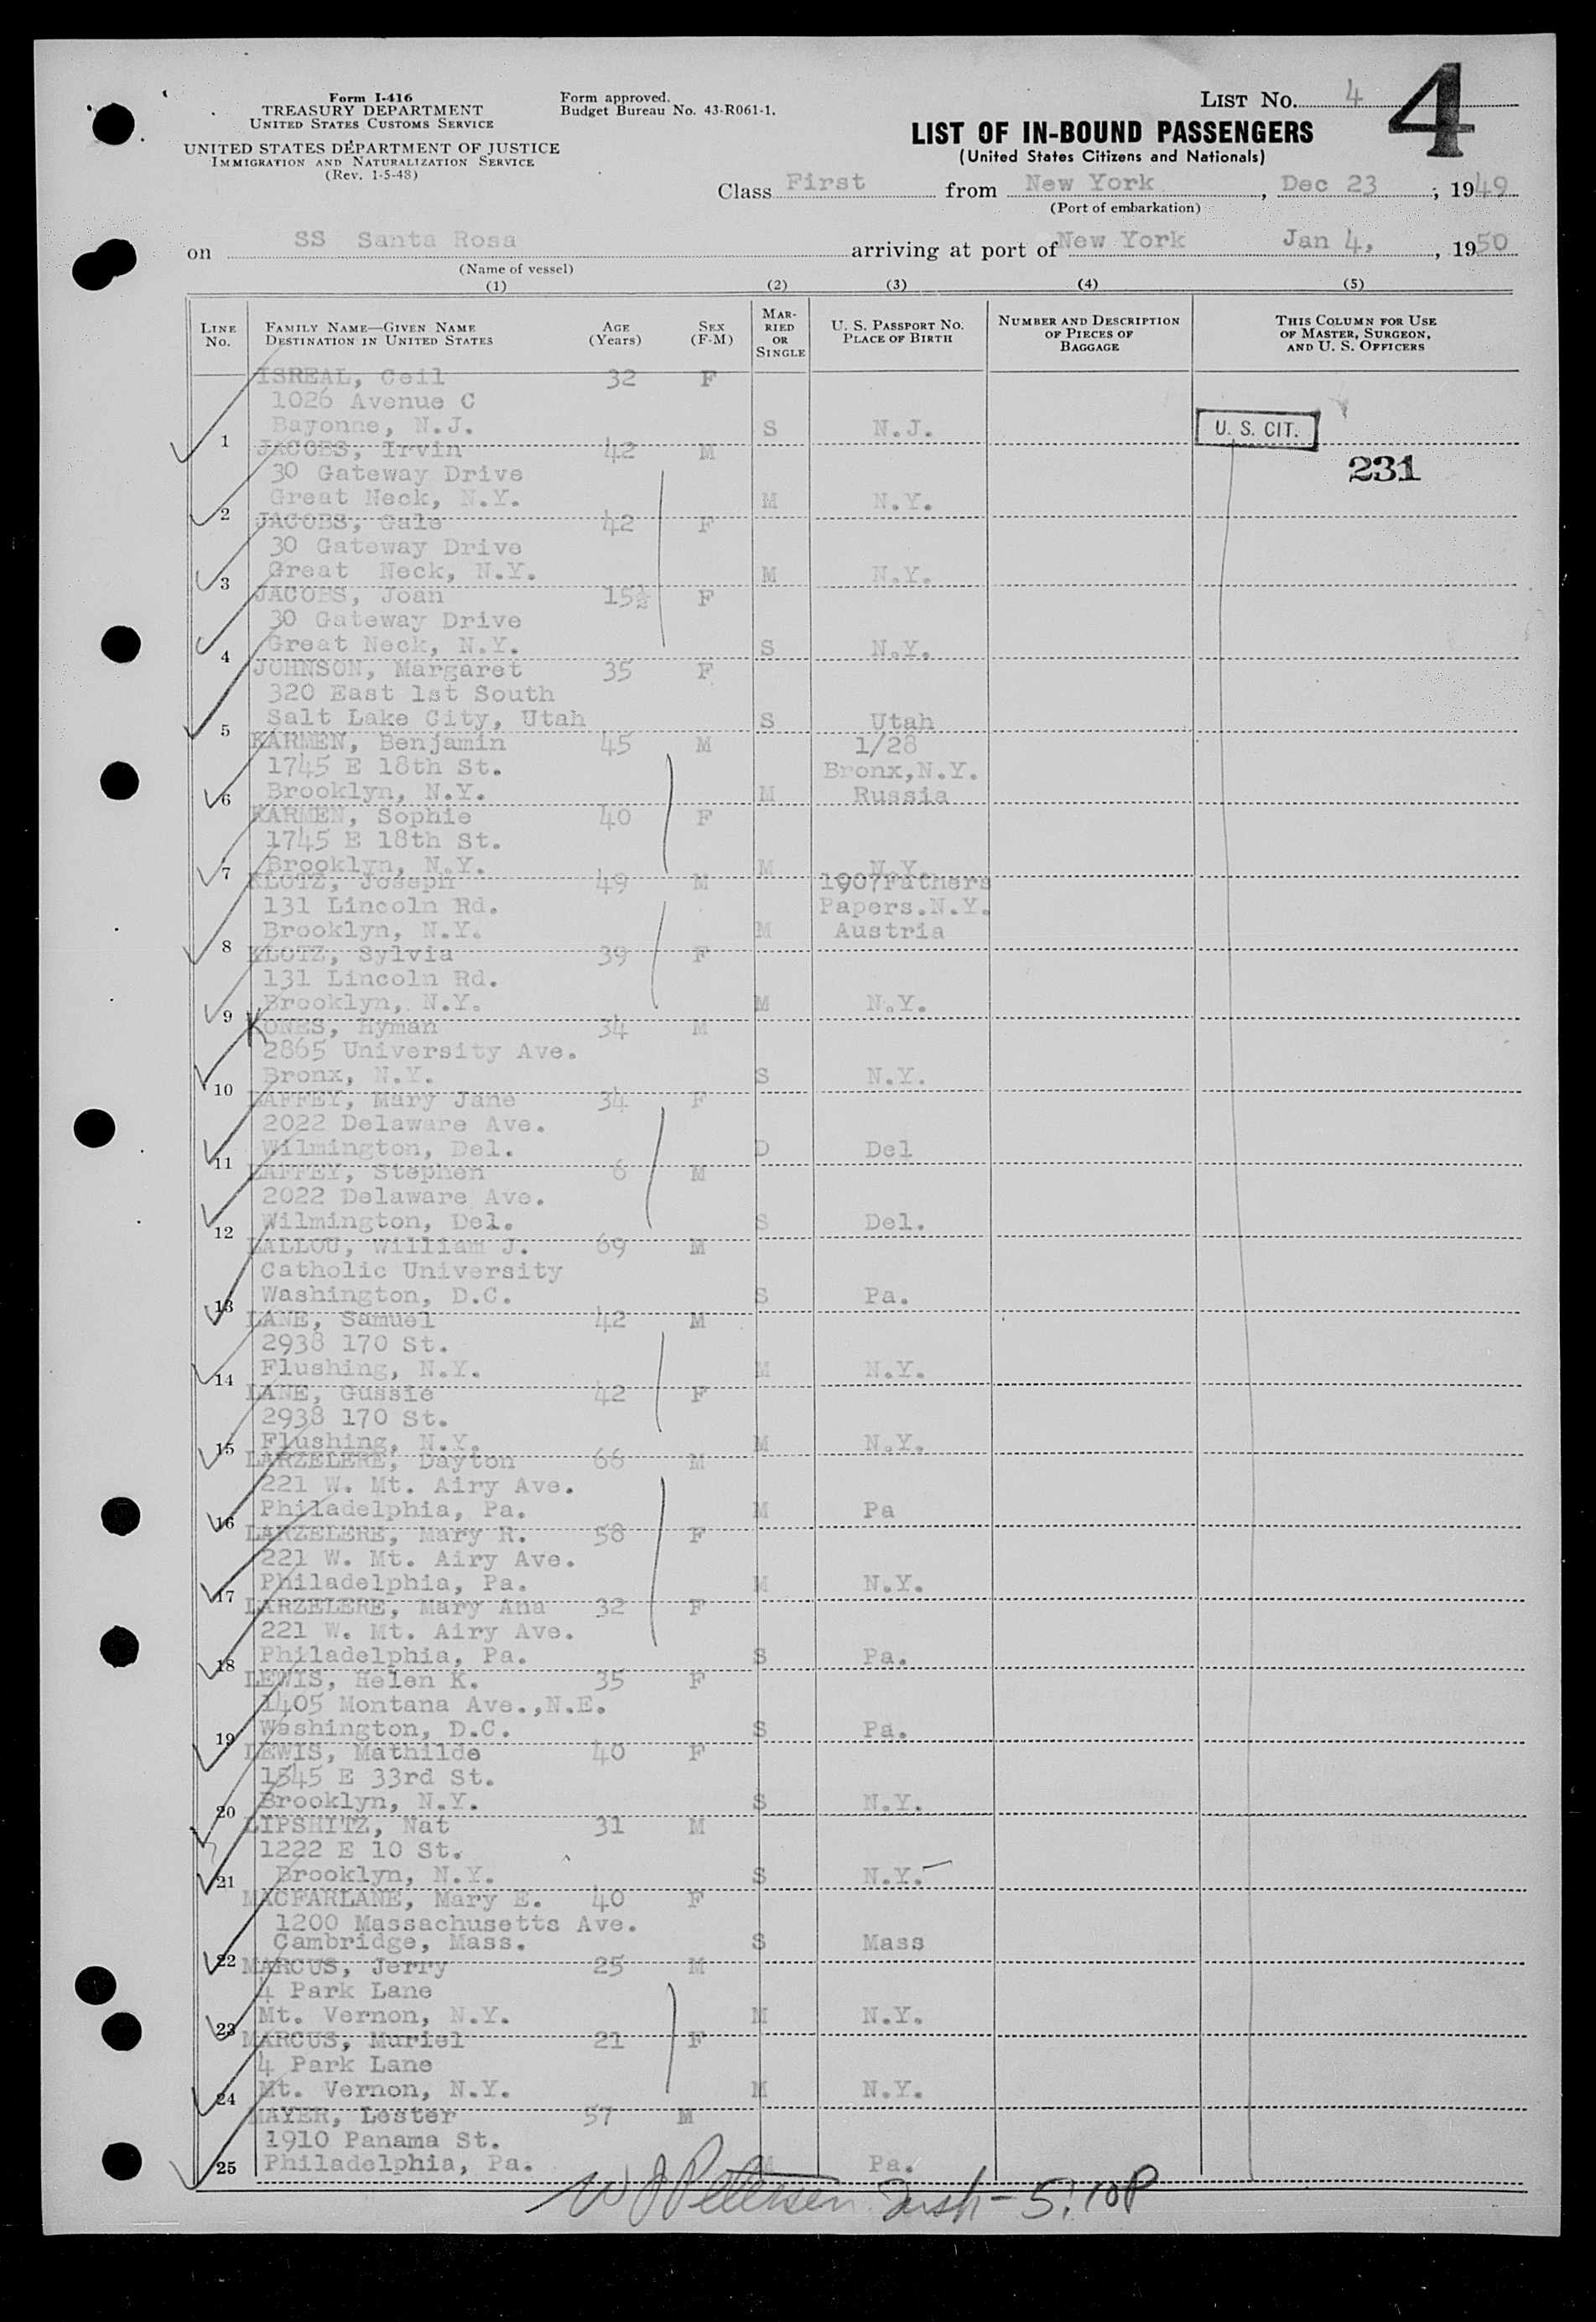 Form I-416
TREASURY DEPARTMENT
UNITED STATES CUSTOMS SERVICE
UNITED STATES DEPARTMENT OF JUSTICE
IMMIGRATION AND NATURALIZATION SERVICE
(Rev. 1-5-48)
Form approved.
Budget Bureau No. 43-R061-1.
LIST NO. 4
4
LIST OF IN-BOUND PASSENGERS
(United States Citizens and Nationals)
Class First from New York, Dec 23, 1949
(Port of embarkation)
on SS Santa Rosa arriving at port of New York Jan 4, 1950
(Name of vessel)
(1) (2) (3) (4) (5)
LINE NO. FAMILY NAME—GIVEN NAME DESTINATION IN UNITED STATES AGE (Years) SEX (F-M) MARRIED OR SINGLE U. S. PASSPORT NO. PLACE OF BIRTH NUMBER AND DESCRIPTION OF PIECES OF BAGGAGE THIS COLUMN FOR USE OF MASTER, SURGEON, AND U. S. OFFICERS
ISREAL, Ceil 32 F
1026 Avenue C
1 Bayonne, N.J. S N.J. U. S. CIT.
JACOBS, Irvin 42 M
30 Gateway Drive 231
2 Great Neck, N.Y. M N.Y.
JACOBS, Gale 42 F
30 Gateway Drive
3 Great Neck, N.Y. M N.Y.
JACOBS, Joan 15½ F
30 Gateway Drive
4 Great Neck, N.Y. S N.Y.
JOHNSON, Margaret 35 F
320 East 1st South
5 Salt Lake City, Utah S Utah
KARMEN, Benjamin 45 M 1/28
1745 E 18th St. Bronx, N.Y.
6 Brooklyn, N.Y. M Russia
KARMEN, Sophie 40 F
1745 E 18th St.
7 Brooklyn, N.Y. M N.Y.
KLOTZ, Joseph 49 M 1907 Fathers
131 Lincoln Rd. Papers.N.Y.
8 Brooklyn, N.Y. M Austria
KLOTZ, Sylvia 39 F
131 Lincoln Rd.
9 Brooklyn, N.Y. M N.Y.
KONES, Hyman 34 M
2865 University Ave.
10 Bronx, N.Y. S N.Y.
LAFFEY, Mary Jane 34 F
2022 Delaware Ave.
11 Wilmington, Del. D Del
LAFFEY, Stephen 6 M
2022 Delaware Ave.
12 Wilmington, Del. S Del.
LALLOU, William J. 69 M
Catholic University
13 Washington, D.C. S Pa.
LANE, Samuel 42 M
2938 170 St.
14 Flushing, N.Y. M N.Y.
LANE, Gussie 42 F
2938 170 St.
15 Flushing, N.Y. M N.Y.
LARZELERE, Dayton 66 M
221 W. Mt. Airy Ave.
16 Philadelphia, Pa. M Pa
LARZELERE, Mary R. 58 F
221 W. Mt. Airy Ave.
17 Philadelphia, Pa. M N.Y.
LARZELERE, Mary Ana 32 F
221 W. Mt. Airy Ave.
18 Philadelphia, Pa. S Pa.
LEWIS, Helen K. 35 F
1405 Montana Ave.,N.E.
19 Washington, D.C. S Pa.
LEWIS, Mathilde 40 F
1545 E 33rd St.
20 Brooklyn, N.Y. S N.Y.
LIPSHITZ, Nat 31 M
1222 E 10 St.
21 Brooklyn, N.Y. S N.Y.
MACFARLANE, Mary E. 40 F
1200 Massachusetts Ave.
22 Cambridge, Mass. S Mass
MARCUS, Jerry 25 M
4 Park Lane
23 Mt. Vernon, N.Y. M N.Y.
MARCUS, Muriel 21 F
4 Park Lane
24 Mt. Vernon, N.Y. M N.Y.
MAYER, Lester 57 M
1910 Panama St.
25 Philadelphia, Pa. M Pa.
W J Petersen 5:10P